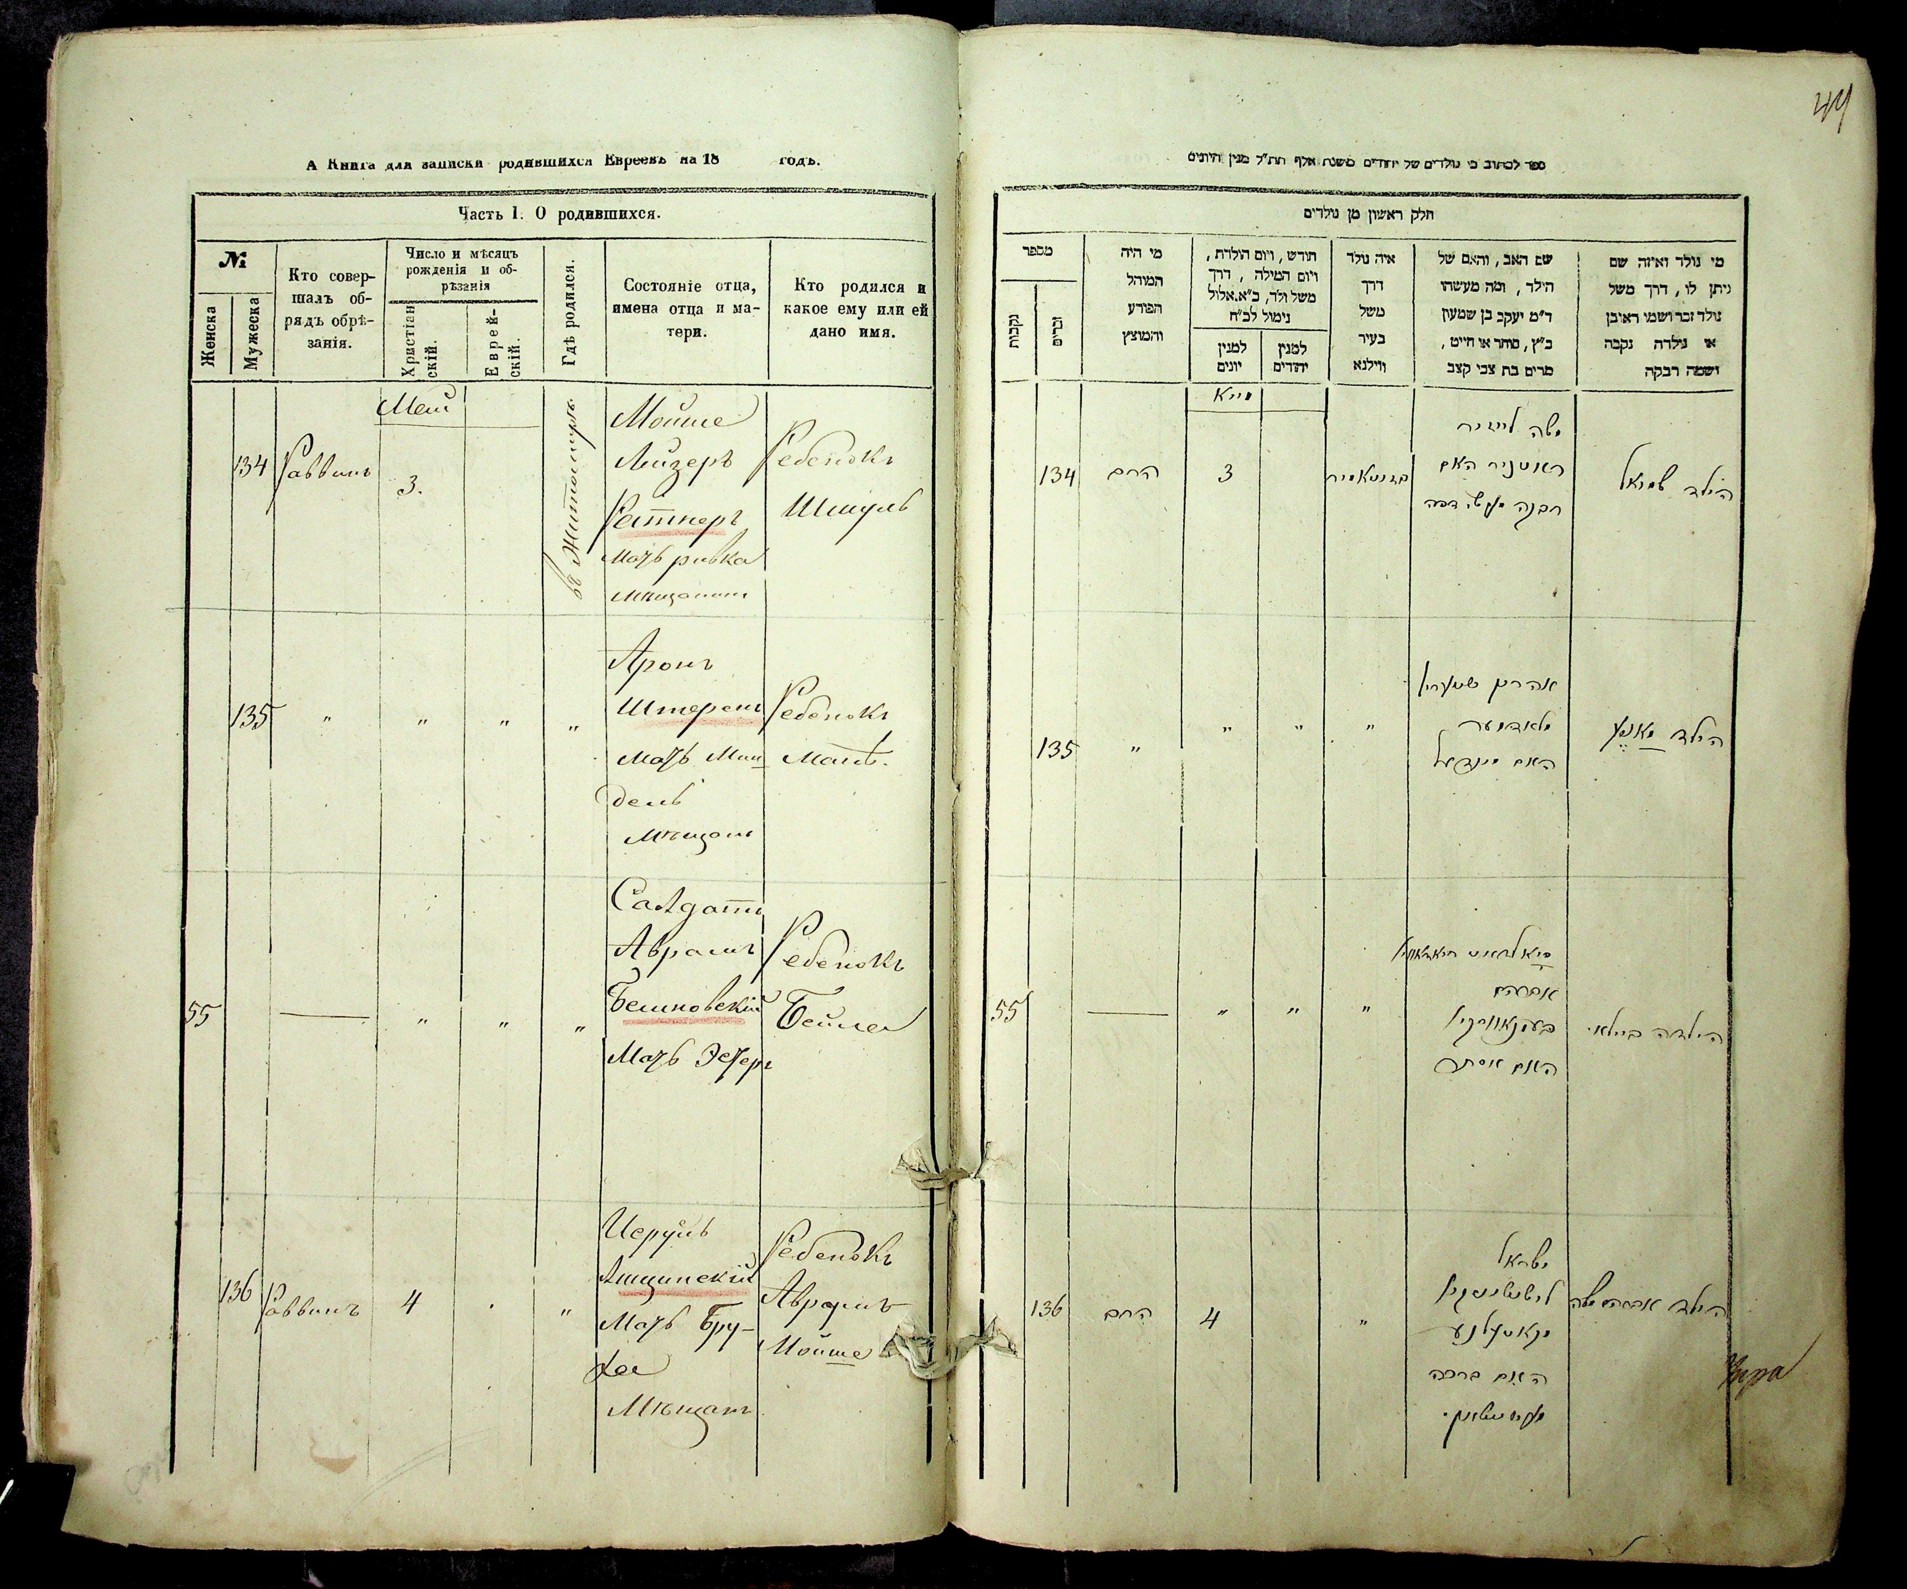 А Книга для записки родившихся Евреевъ на 18 годъ.
Часть I. О родившихся.
№
Женска
Мужеска
Кто совер-
шалъ об-
рядъ обрѣ-
занія.
Число и мѣсяцъ
рожденія и об-
рѣзанія
Христіан-
скій.
Еврей-
скій.
Гдѣ родился.
Состояніе отца,
имена отца и ма-
тери.
Кто родился и
какое ему или ей
дано имя.
Маій
134
Раввинъ
3.
въ Житомирѣ
Мойше
Лейзеръ
Ратнеръ
Мать ривка
мѣщанин
Ребенокъ
Шмуль
135
"
"
"
"
Аронъ
Штеренъ
Мать Мин
дель
Мѣщанъ
Ребенокъ
55
"
"
"
Салдатъ
Аврамъ
Мать Эстеръ
Ребенокъ
Бейла
136
Раввинъ
4
"
Мать Бру-
ха
Мѣщанъ
Ребенокъ
Аврумъ
Мойше
44
ספר לכתוב בי נולדים של יהודים משנת אלף תת"ל מנין היונים
חלק ראשון מן נולדים
מספר
נקבות
זכרים
מי היה
המוהל
הפורע
והמוצץ
חודש, ויום הולדת,
ויום המילה, דרך
משל ולד, כ"א אלול
נימול לכ"ח
למנין
יונים
למנין
יהודים
איה נולד
דרך
משל
בעיר
ווילנא
שם האב, והאם של
הילד, ומה מעשהו
ד"מ יעקב בן שמעון
כ"ץ, סוחר או חייט,
מרים בת צבי קצב
מי נולד ואיזה שם
ניתן לו, דרך משל
נולד זכר ושמו ראובן
או נולדה נקבה
ושמה רבקה
מייא
134
הרב
3
בזיטאמיר
משה לייזער
ראטניר האם
הילד שמואל
135
"
"
"
"
אהרן שטערין
האם מינדעל
הילד
55
"
"
"
אברהם
האם אסתר
הילדה ביילא
136
הרב
4
"
ישראל
האם ברכה
הילד אברהם משה